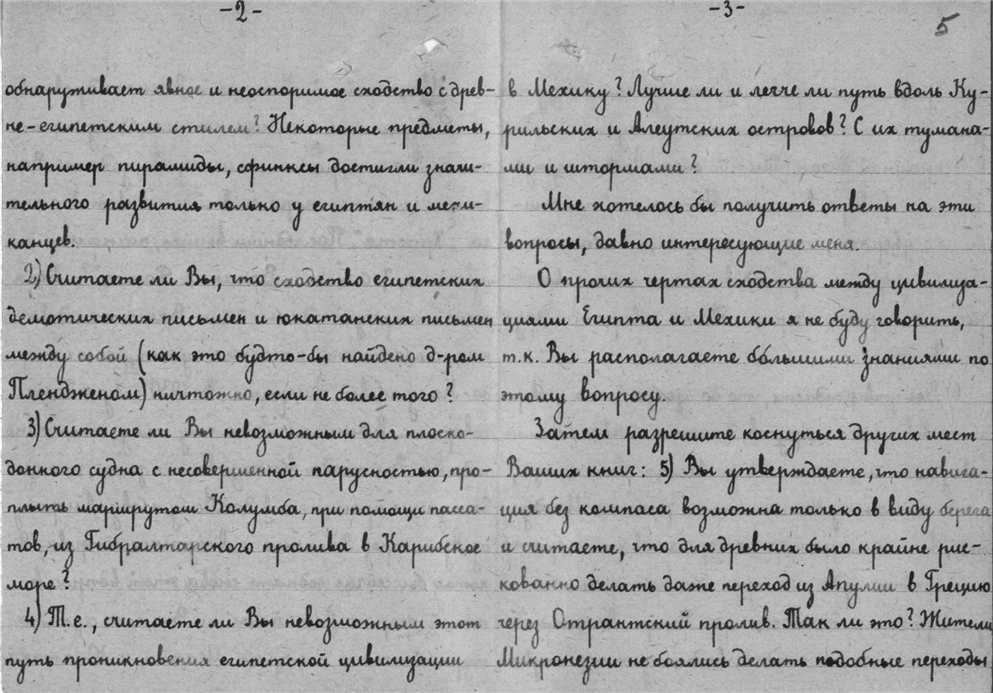 -2-
обнаруживает явное и неоспоримое сходство с древ-
не-египетским стилем? Некоторые предметы,
например пирамиды, сфинксы достигли значи-
тельного развития только у египтян и мекси-
канцев.
2) Считаете ли Вы, что сходство египетских
демотических письмен и юкатанских письмен
между собой (как это будто-бы найдено д-ром
Плендженом) ничтожно, если не более того?
3) Считаете ли Вы невозможным для плоско-
донного судна с несовершенной парусностью, про-
плыть маршрутом Колумба, при помощи пасса-
тов, из Гибралтарского пролива в Карибское
море?
4) Т.е., считаете ли Вы невозможным этот
путь проникновения египетской цивилизации
-3-
5
в Мехику? Лучше ли и легче ли путь вдоль Ку-
рильских и Алеутских островов? С их тумана-
ми и штормами?
Мне хотелось бы получить ответы на эти
вопросы, давно интересующие меня.
О прочих чертах сходства между цивилиза-
циями Египта и Мехики я не буду говорить,
т.к. Вы располагаете бо́льшими знаниями по
этому вопросу.
Затем разрешите коснуться других мест
Ваших книг: 5) Вы утверждаете, что навига-
ция без компаса возможна только в виду берега
и считаете, что для древних было крайне рис-
кованно делать даже переход из Апулии в Грецию
через Отрантский пролив. Так ли это? Жители
Микронезии не боялись делать подобные переходы